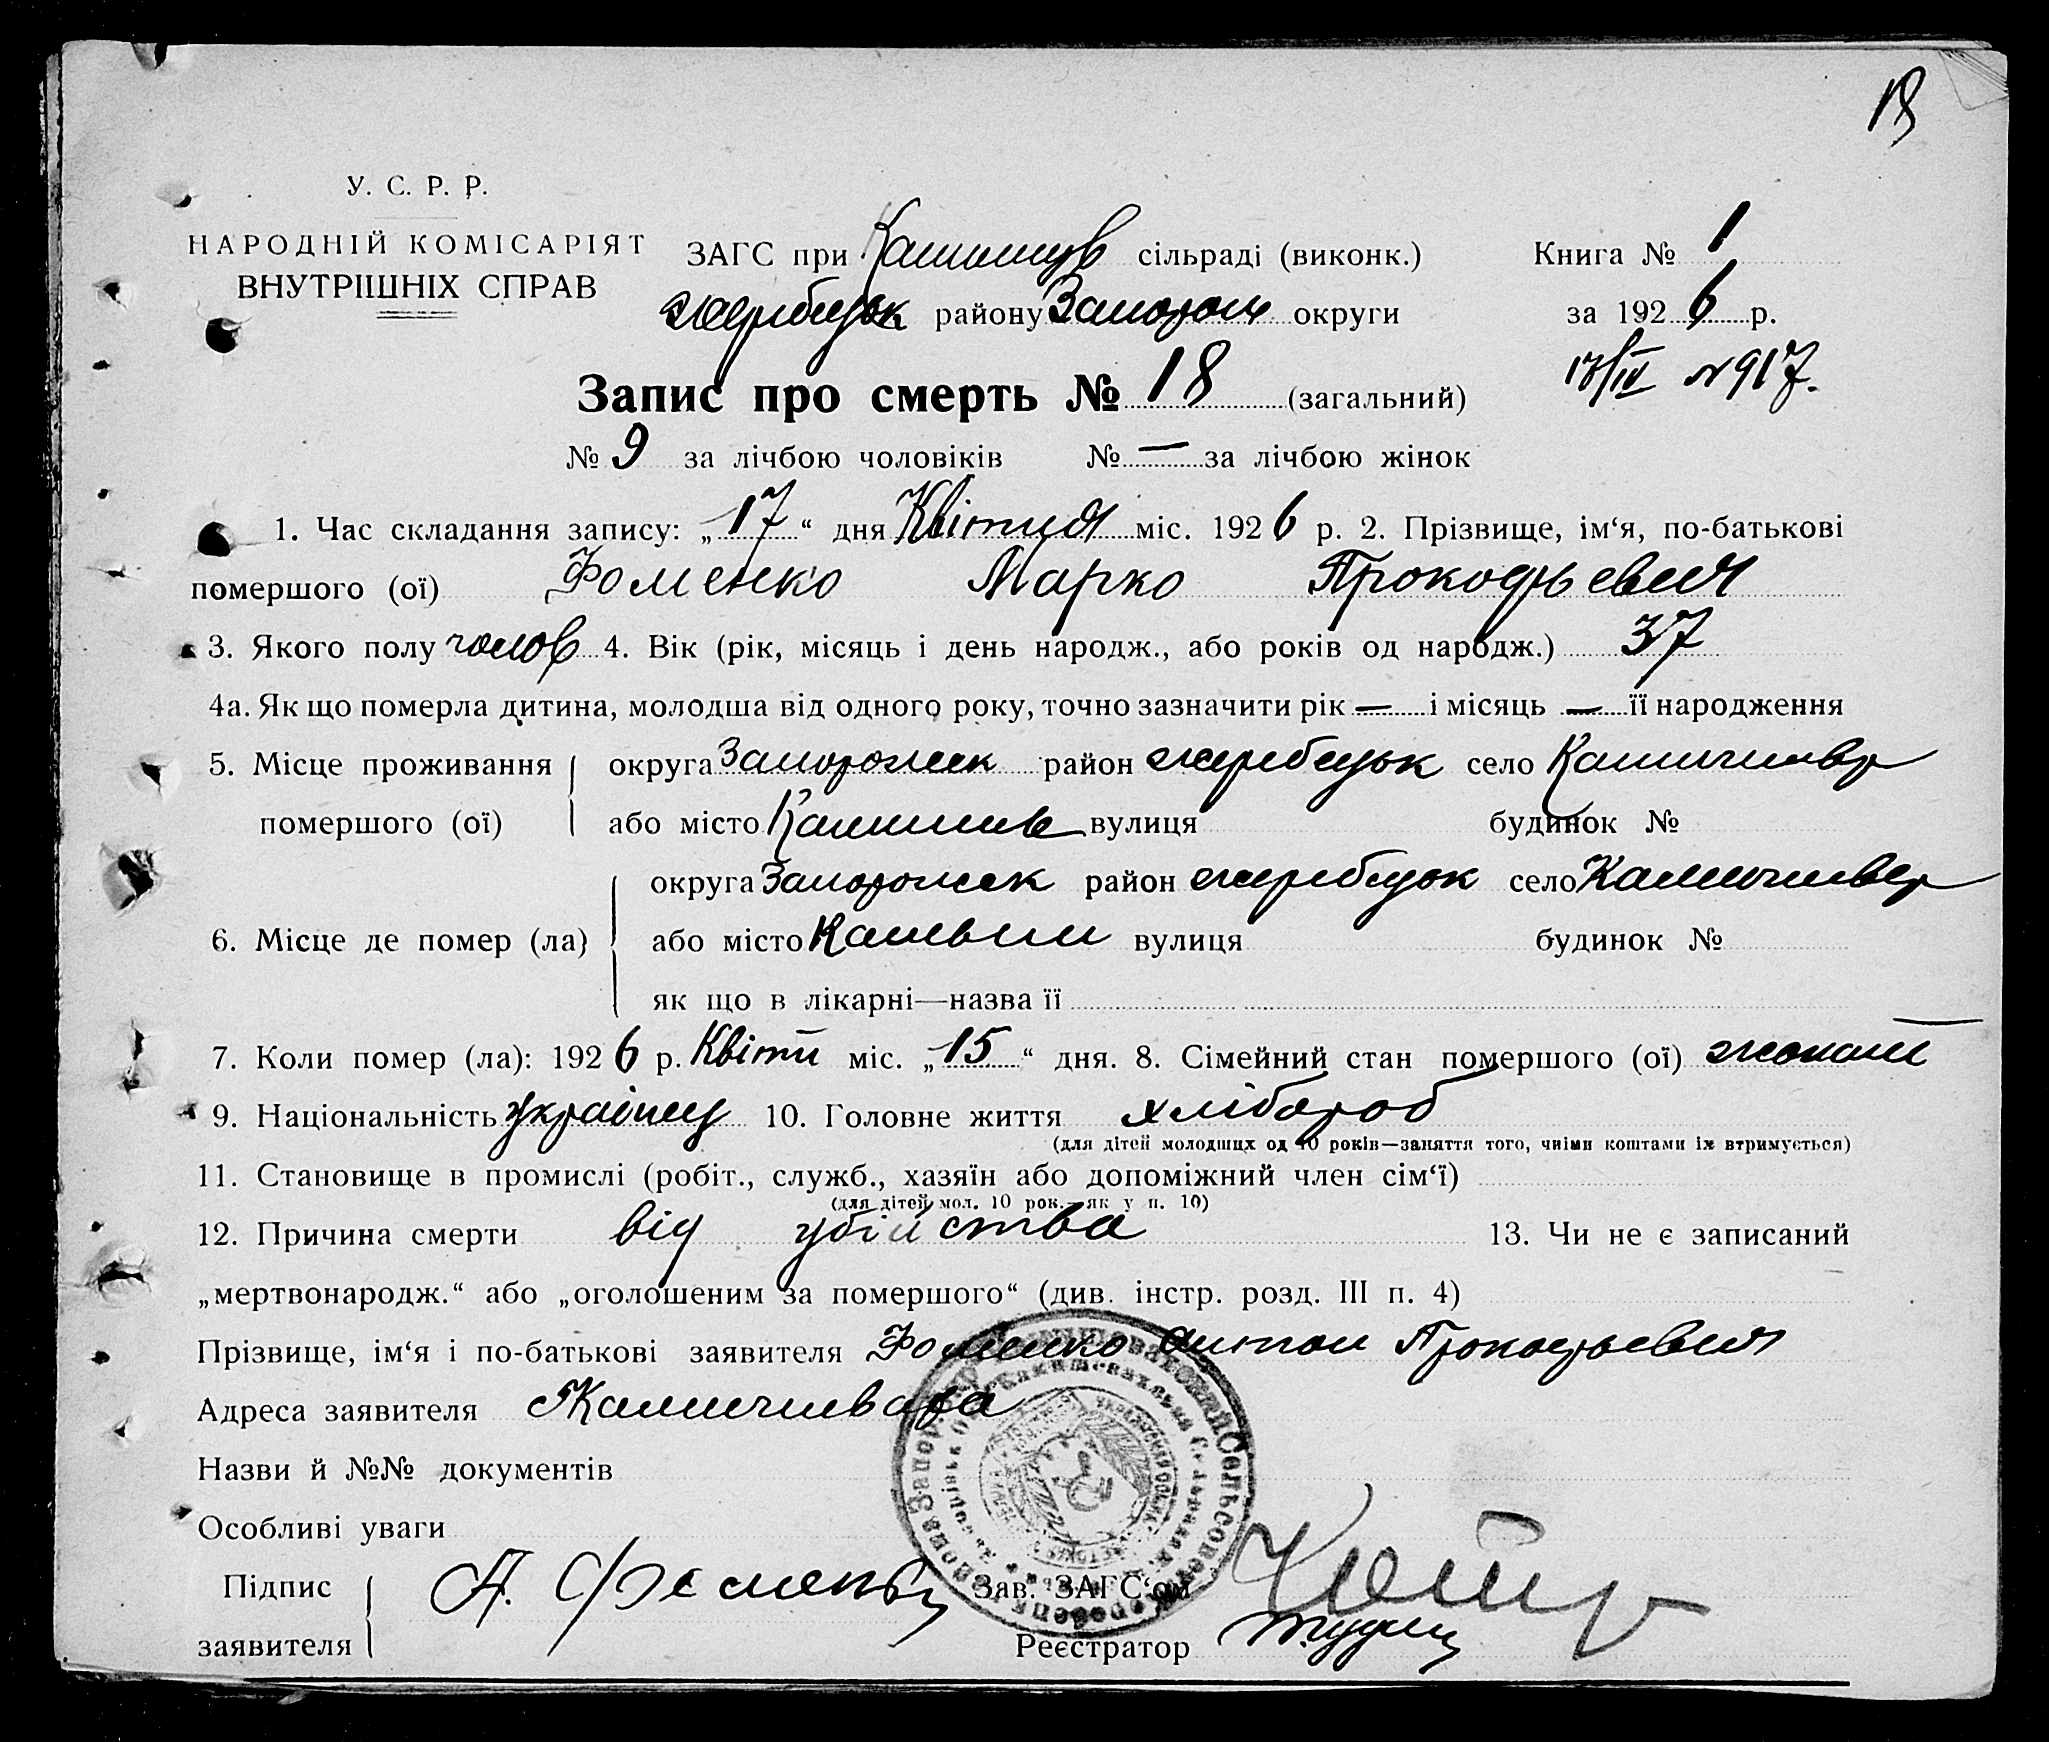 18
У. С. Р. Р.
НАРОДНІЙ КОМІСАРІЯТ
ВНУТРІШНІХ СПРАВ
ЗАГС при сільраді (виконк.)
Книга № 1
жеребецьк району Запорож округи
за 1926 р.
Запис про смерть № 18 (загальний)
17/IV № 917.
№ 9 за лічбою чоловіків № — за лічбою жінок
1. Час складання запису: „17“ дня Квітня міс. 1926 р. 2. Прізвище, ім‘я, по-батькові
помершого (ої) Фоменко Марко Прокофьевич
3. Якого полу чолов 4. Вік (рік, місяць і день народж., або років од народж.) 37
4а. Як що померла дитина, молодша від одного року, точно зазначити рік — і місяць — її народження
5. Місце проживання округа Запорожск район жеребецьк село
помершого (ої) або місто вулиця будинок №
округа Запорожск район жеребецьк село
6. Місце де помер (ла) або місто вулиця будинок №
як що в лікарні—назва її
7. Коли помер (ла): 1926 р. Квітн міс. „15“ дня. 8. Сімейний стан помершого (ої) жонат
9. Національність Українец 10. Головне життя хлібороб
(для дітей молодших од 10 років—заняття того, чиїми коштами їх втримується)
11. Становище в промислі (робіт., служб., хазяїн або допоміжний член сім‘ї)
(для дітей мол. 10 рок.—як у п. 10)
12. Причина смерти від убійства 13. Чи не є записаний
„мертвонародж.“ або „оголошеним за помершого“ (див. інстр. розд. III п. 4)
Прізвище, ім‘я і по-батькові заявителя Фоменко Антон Прокофьевич
Адреса заявителя
Назви й №№ документів
Особливі уваги
Підпис А. Фоменко Зав. ЗАГС‘ом
заявителя Реєстратор